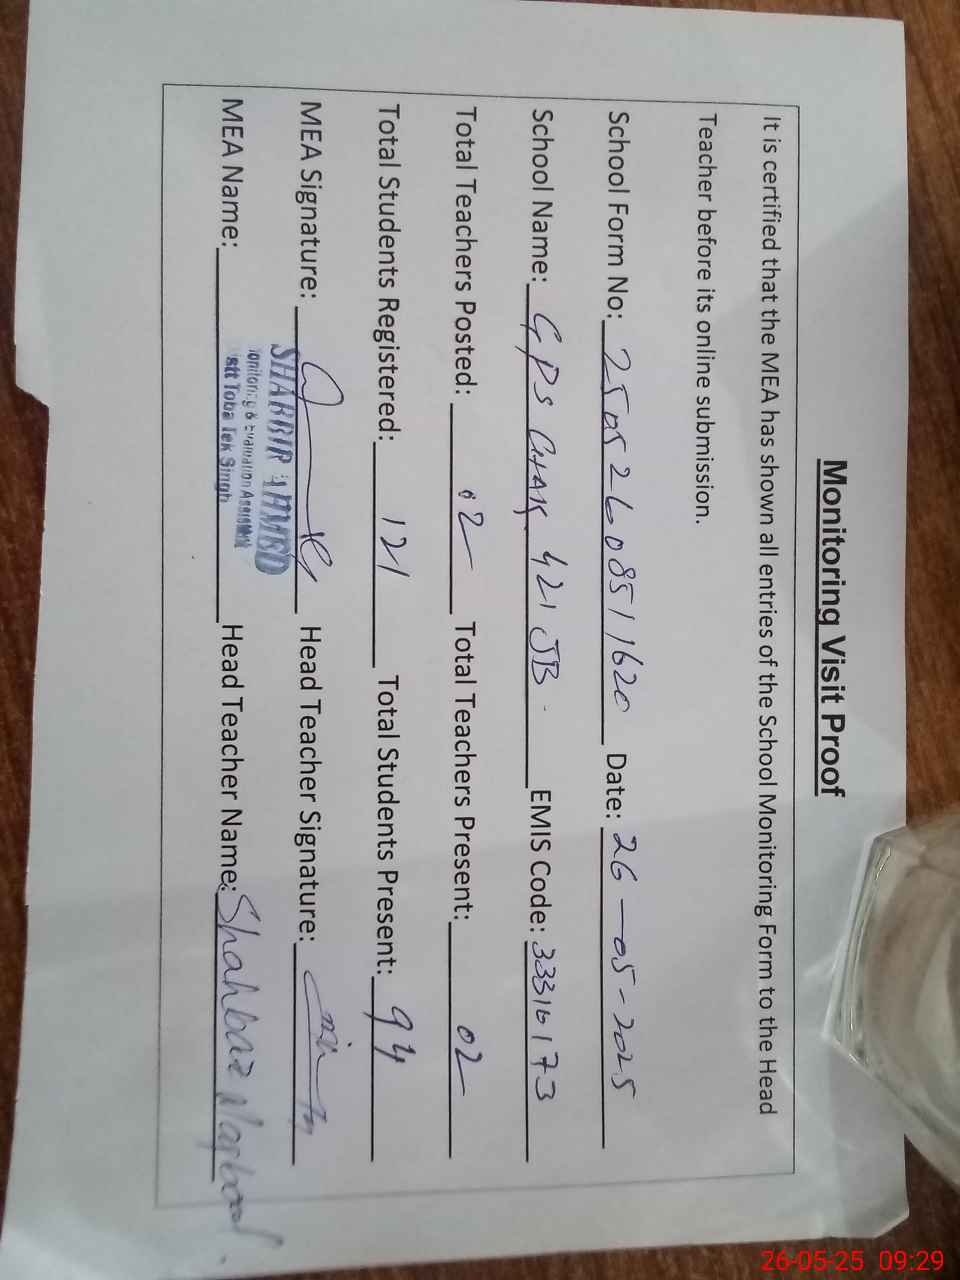 Monitoring Visit Proof
It is certified that the MEA has shown all entries of the School Monitoring Form to the Head
Teacher before its online submission.
School Form No: 25052608511620 Date: 26-05-2025
School Name: GPS CHAK 421 JB. EMIS Code: 33310173
Total Teachers Posted: 02 Total Teachers Present: 02
Total Students Registered: 121 Total Students Present: 94
MEA Signature: Head Teacher Signature:
SHABBIR AHMED
Monitoring & Evaluation Assistant
Distt Toba Tek Singh
MEA Name: Head Teacher Name: Shahbaz Maqbool.
26-05-25 09:29